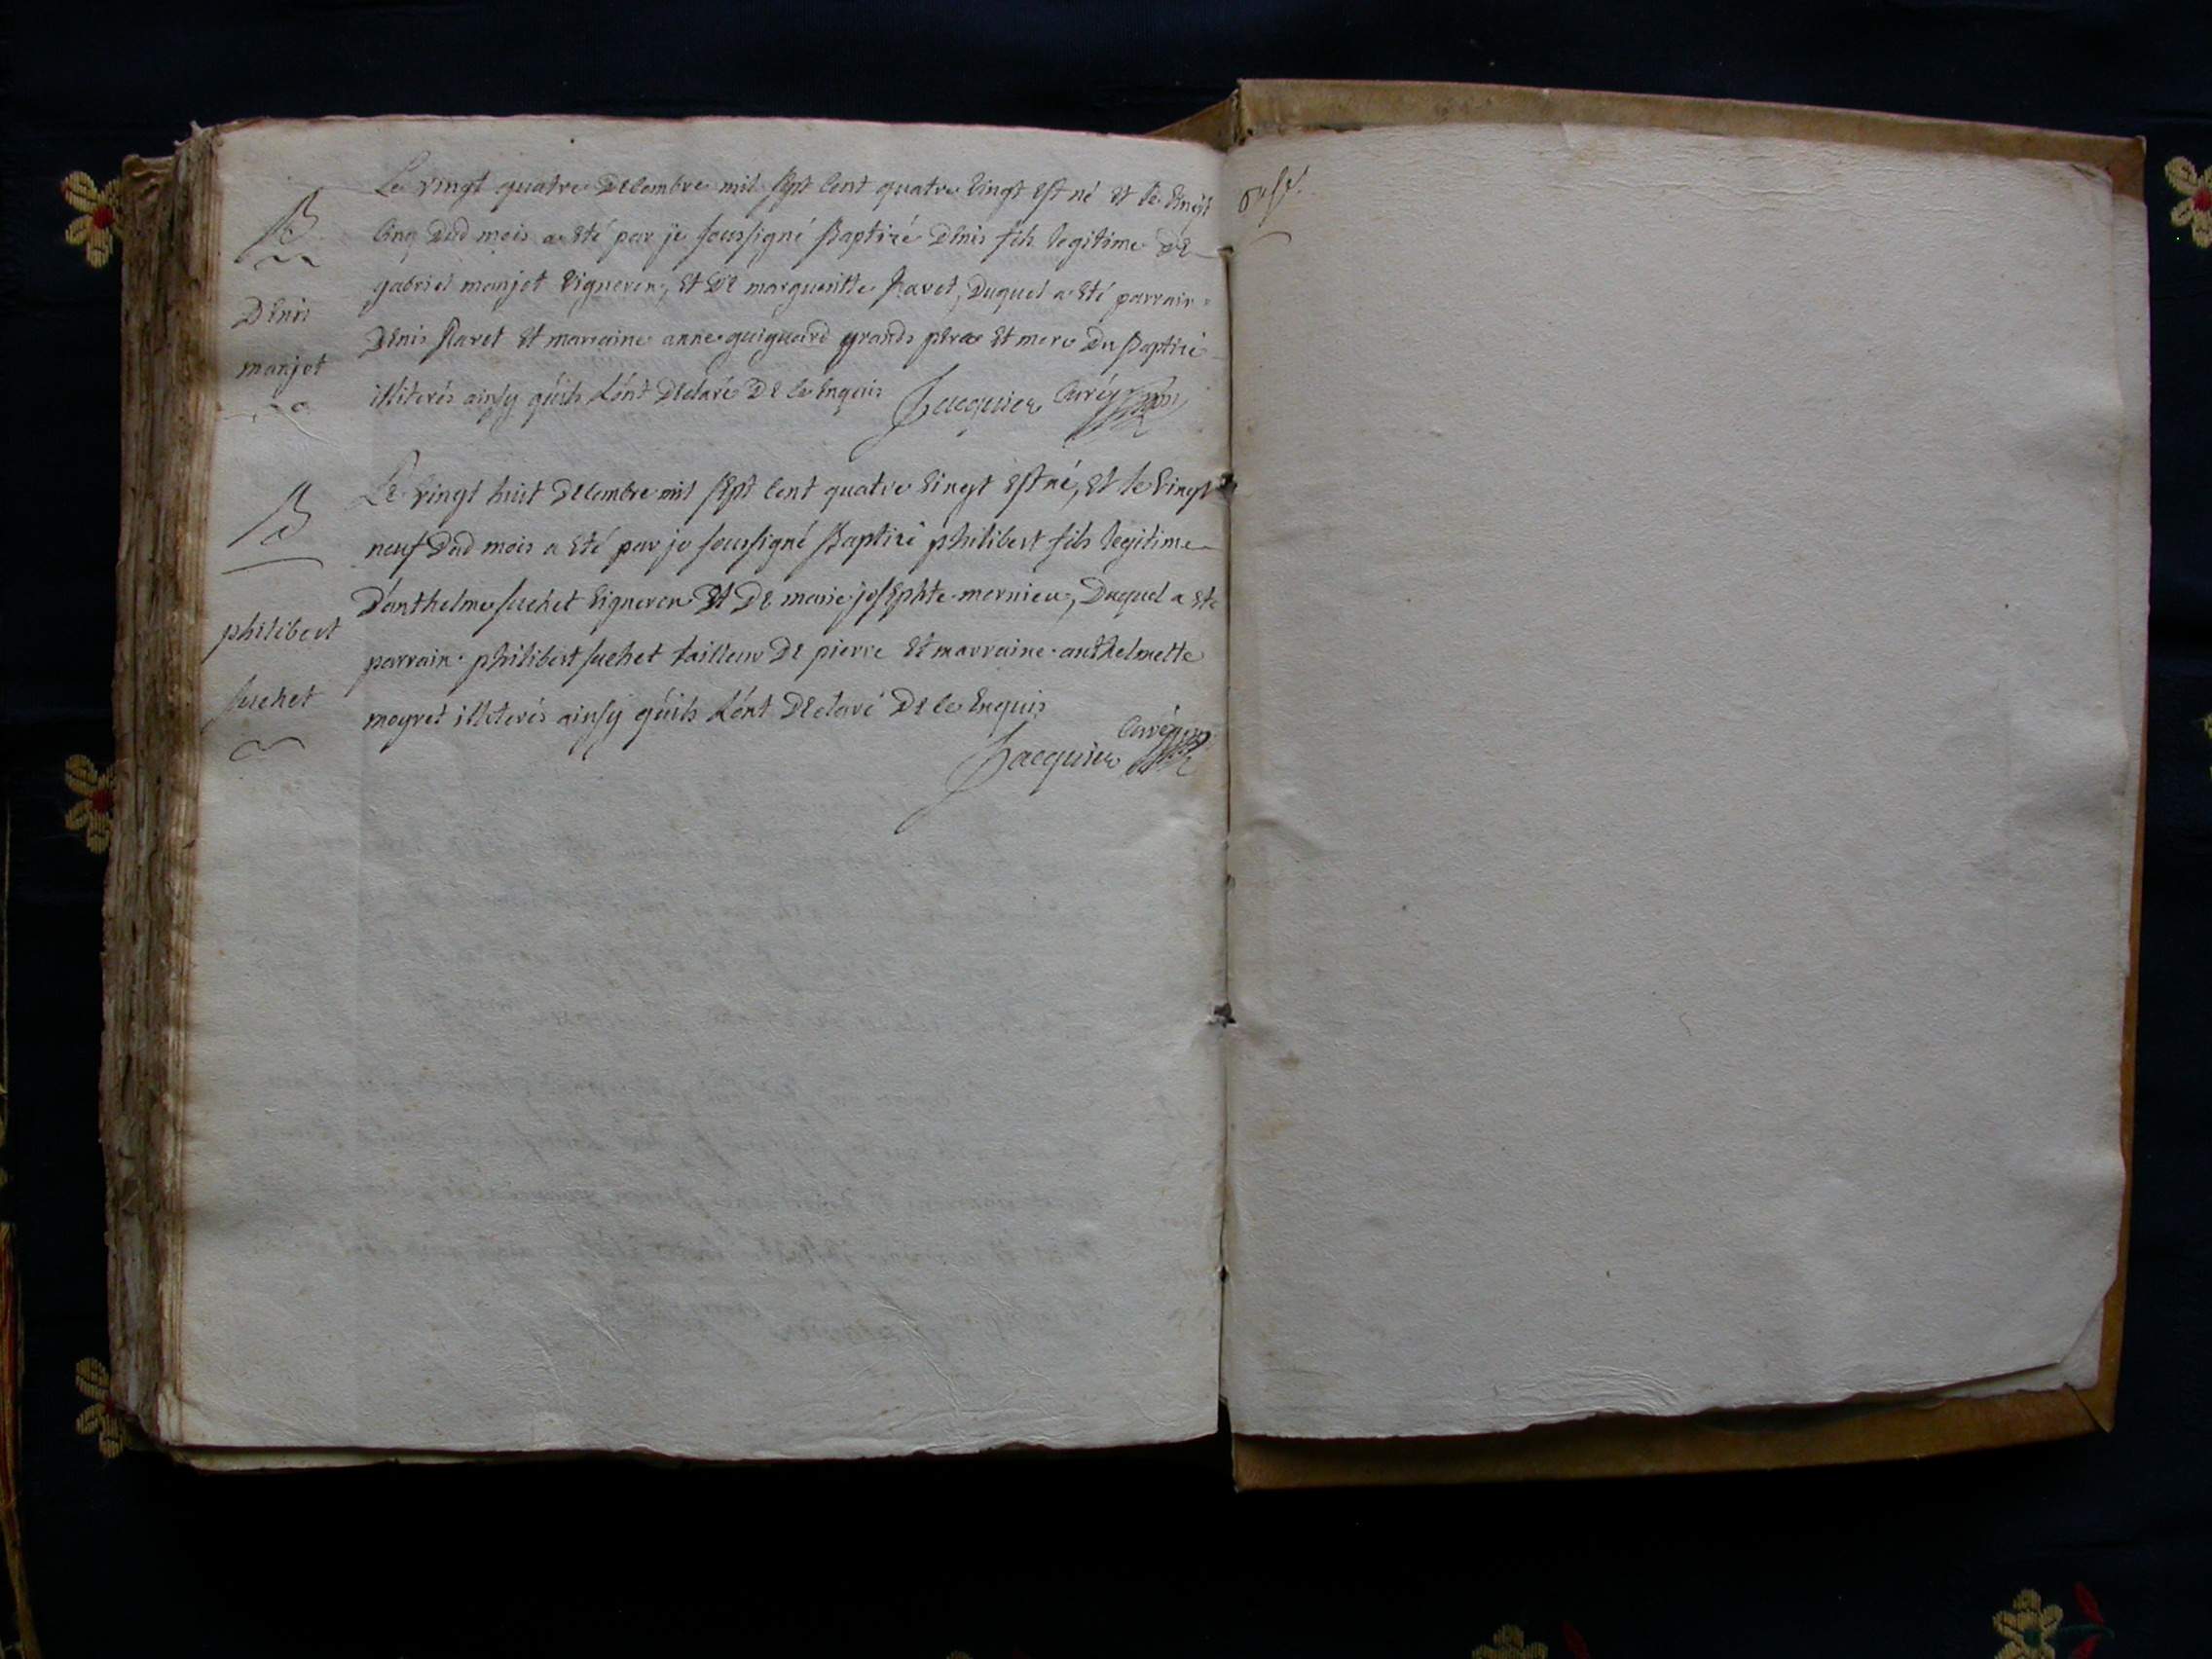 B
Denis
manjot
Le vingt quatre Decembre mil sept cent quatre vingt est né et le vingt
cinq Dud mois a eté par je soussigné Baptisé Denis fils legitime de
gabriel manjot vigneron, et De margueritte Ravet, Duquel a eté parrain
Denis Ravet et marraine anne guiguard grands pere et mere Du Baptisé
illiterés ainsy qu'ils L'ont Declaré De ce Enquis Jacquier Curé
B
philibert
suchet
Le vingt huit Decembre mil sept cent quatre vingt est né, et le vingt
neuf Dud mois a eté par je soussigné Baptisé philibert fils legitime
D'anthelme suchet vigneron et De marie josephte mornieu, Duquel a eté
parrain philibert suchet tailleur De pierre et marraine anthelmette
moyret illiterés ainsy qu'ils L'ont Declaré De ce Enquis
Jacquier Curé